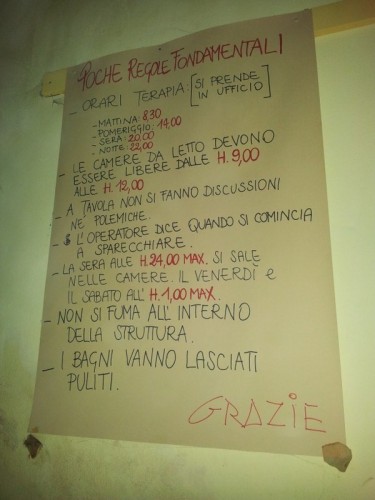 POCHE REGOLE FONDAMENTALI
- ORARI TERAPIA: [SI PRENDE IN UFFICIO]
- MATTINA: 8,30
- POMERIGGIO: 14,00
- SERA: 20,00
- NOTTE: 22,00
- LE CAMERE DA LETTO DEVONO
ESSERE LIBERE DALLE H. 9,00
ALLE H. 12,00
- A TAVOLA NON SI FANNO DISCUSSIONI
NE' POLEMICHE.
- L'OPERATORE DICE QUANDO SI COMINCIA
A SPARECCHIARE.
- LA SERA ALLE H. 24,00 MAX. SI SALE
NELLE CAMERE. IL VENERDÌ E
IL SABATO ALL' H. 1,00 MAX.
- NON SI FUMA ALL'INTERNO
DELLA STRUTTURA.
- I BAGNI VANNO LASCIATI
PULITI.
GRAZIE